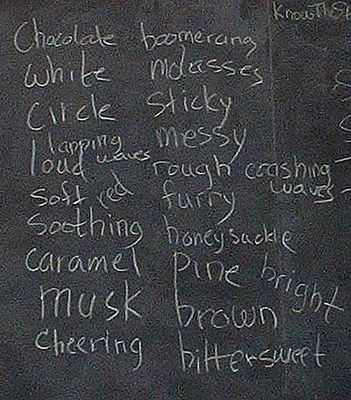 KnowTheSt
Chocolate boomerang
White molasses
Circle sticky
lapping messy
loud waves rough crashing
soft red furry waves
Soothing honeysuckle
caramel pine bright
musk brown
cheering bittersweet